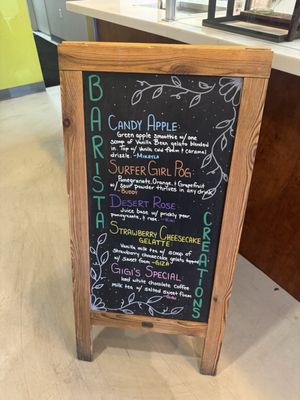 BARISTA
CREATIONS
CANDY APPLE:
Green apple smoothie w/ one
scoop of Vanilla Bean gelato blended
in. Top w/ Vanilla cold foam & caramel
drizzle. -MIKAYLA
SURFER GIRL POG:
Pomegranate, Orange, & Grapefruit
w/ Sour powder thrives in any drink
-BUDDY
DESERT ROSE:
Juice base w/ prickly pear,
pomegranate, & rose.
STRAWBERRY CHEESECAKE
GELATTE
Vanilla milk tea w/ scoop of
Strawberry cheesecake gelato
w/ sweet foam -GIZA
GIGI'S SPECIAL:
Iced white chocolate coffee
milk tea w/ salted sweet foam